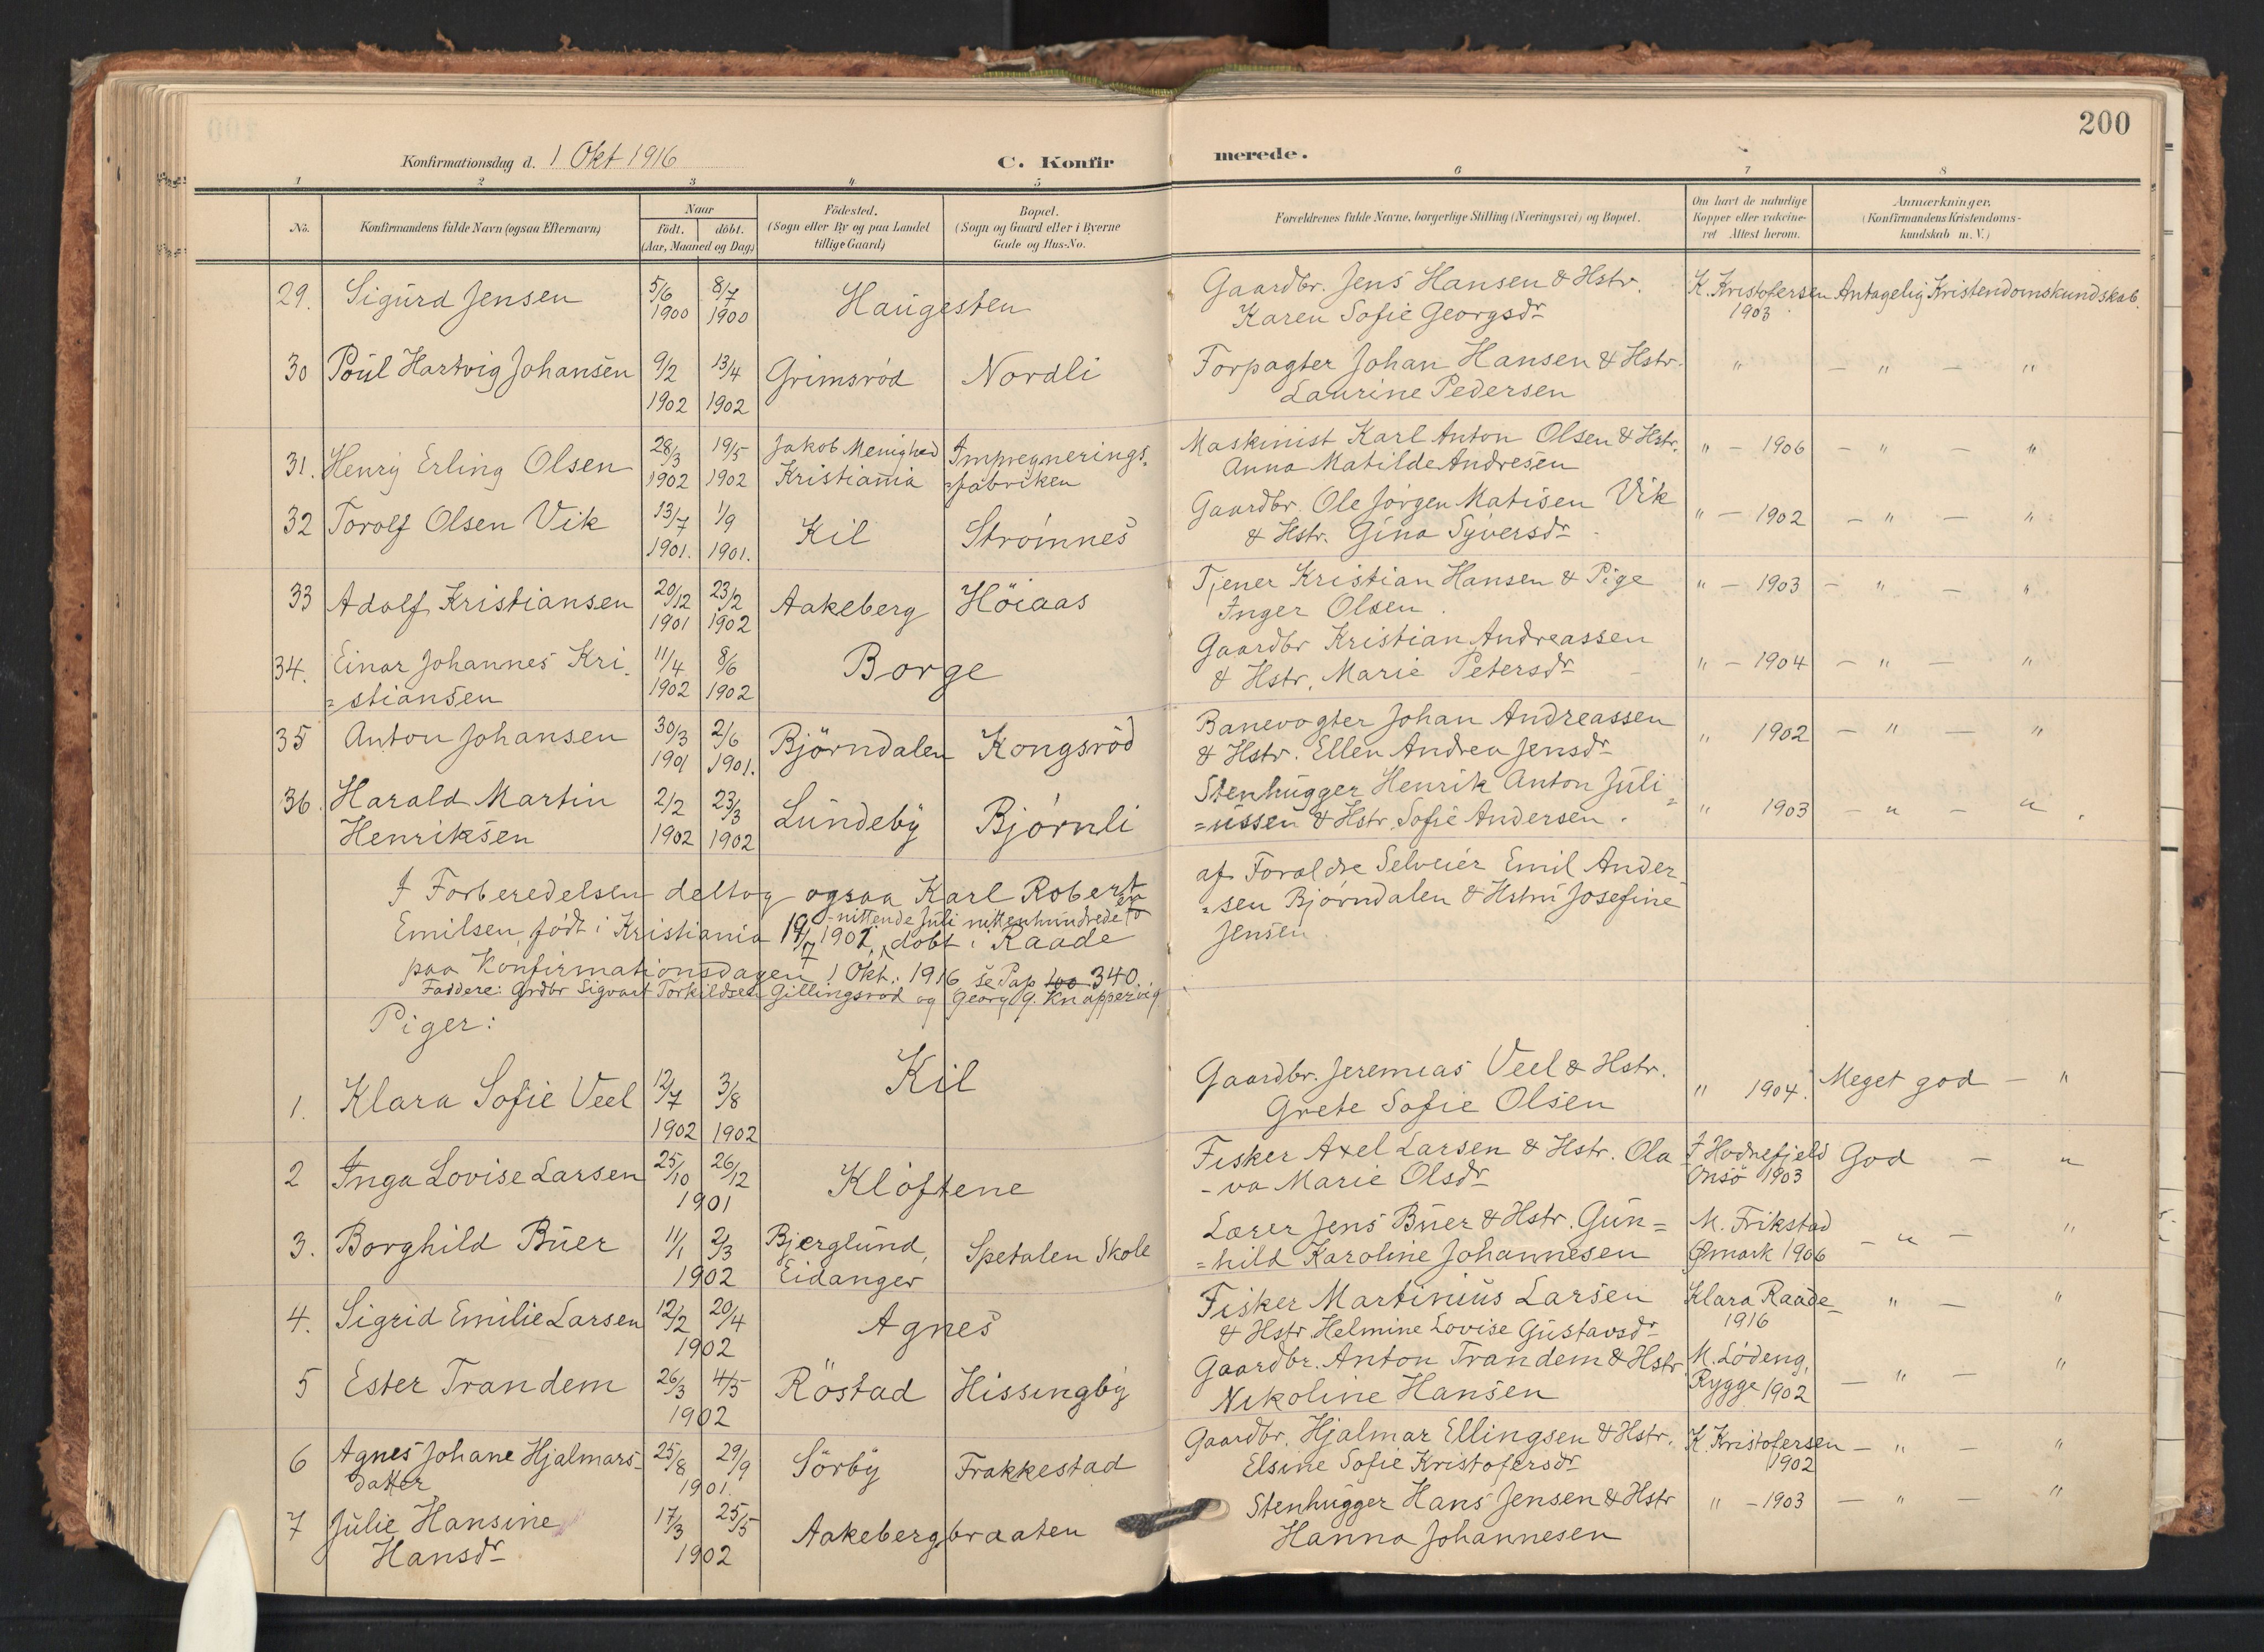 200
Konfirmationsdag d. 1 Okt 1916
C. Konfirmerede.
1 2 3 4 5 6 7 8
No.
Konfirmandens fulde Navn (ogsaa Efternavn)
Naar
födt. döbt.
(Aar, Maaned og Dag)
Födested.
(Sogn eller By og paa Landet
tillige Gaard)
Bopæl.
(Sogn og Gaard eller i Byerne
Gade og Hus-No.
Forældrenes fulde Navne, borgerlige Stilling (Næringsvei) og Bopæl.
Om havt de naturlige
Kopper eller vakcine-
ret Attest herom.
Anmærkninger.
(Konfirmandens Kristendoms-
kundskab m. V.)
29. Sigurd Jensen 5/6 1900 8/7 1900 Haugesten Gaardbr. Jens Hansen & Hstr.
Karen Sofie Georgsdr K. Kristofersen 1903 Antagelig Kristendomskundskab.
30 Poul Hartvig Johansen 9/2 1902 13/4 1902 Grimsröd Nordli Forpagter Johan Hansen & Hstr.
Laurine Pedersen " — " — "
31. Henry Erling Olsen 28/3 1902 19/5 1902 Jakob Menighed
Kristiania Impregnerings-
=fabriken Maskinist Karl Anton Olsen & Hstr.
Anna Matilde Andresen " — 1906 — " — "
32 Torolf Olsen Vik 13/7 1901. 1/9 1901. Kil Strømnes Gaardbr. Ole Jørgen Matisen Vik
& Hstr. Gina Syversdr " — 1902 — " — "
33 Adolf Kristiansen 20/12 1901 23/2 1902 Aakeberg Höiaas Tjener Kristian Hansen & Pige
Inger Olsen. " — 1903 — " — "
34. Einar Johannes Kri-
=stiansen 11/4 1902 8/6 1902 Borge Gaardbr Kristian Andreassen
& Hstr. Marie Petersdr " — 1904 — " — "
35 Anton Johansen 30/3 1901 2/6 1901. Björndalen Kongsröd Banevogter Johan Andreassen
& Hstr. Ellen Andrea Jensdr " 1902 — " — "
36. Harald Martin
Henriksen 2/2 1902 23/3 1902 Lundeby Bjørnli Stenhugger Henrik Anton Juli=
=ussen & Hstr. Sofie Andersen. " 1903 — " — "
I Forberedelsen deltog ogsaa Karl Robert
Emilsen, født i Kristiania 19/7 1902, døbt i Raade
- nittende Juli nittenhundrede to
paa Konfirmationsdagen 1 Okt. 1916 se Pap 100 340.
Faddere: Grdbr Sigvart Torkildsen Gillingsrød og Georg G. Knappervig
af Foraldre Selveier Emil Ander-
=sen Bjørndalen & Hstru Josefine
Jensen
Piger:
1. Klara Sofie Veel 12/7 1902 3/8 1902 Kil Gaardbr. Jeremias Veel & Hstr.
Grete Sofie Olsen " 1904. Meget god — "
2 Inga Lovise Larsen 25/10 26/12 1901 Kløftene Fisker Axel Larsen & Hstr. Ola
-va Marie Olsdr I Hodnefjeld
Onsö 1903 God — "
3. Borghild Buer 11/1 2/3 1902 Bjerglund,
Eidanger Spetalen Skole Lærer Jens Buer & Hstr. Gun=
=hild Karoline Johannesen M. Frikstad
Ømark 1906 — " — "
4. Sigrid Emilie Larsen 12/2 20/4 1902 Agnes Fisker Martinius Larsen
& Hstr. Helmine Lovise Gustavsdr Klara Raade
1916 — " — "
5 Ester Trandem 26/3 4/5 1902 Röstad Hissingby Gaardbr. Anton Trandem & Hstr
Nikoline Hansen M. Lödeng,
Rygge 1902 — " — "
6 Agnes Johane Hjalmars-
Datter 25/8 29/9 1901. Sörby Frakkestad Gaardbr. Hjalmar Ellingsen & Hstr.
Elsine Sofie Kristofersdr K. Kristofersen
1902 — " — "
7 Julie Hansine
Hansdr 17/3 25/5 1902 Aakebergbraaten Stenhugger Hans Jensen & Hstr
Hanna Johannesen " — 1903 — " — "